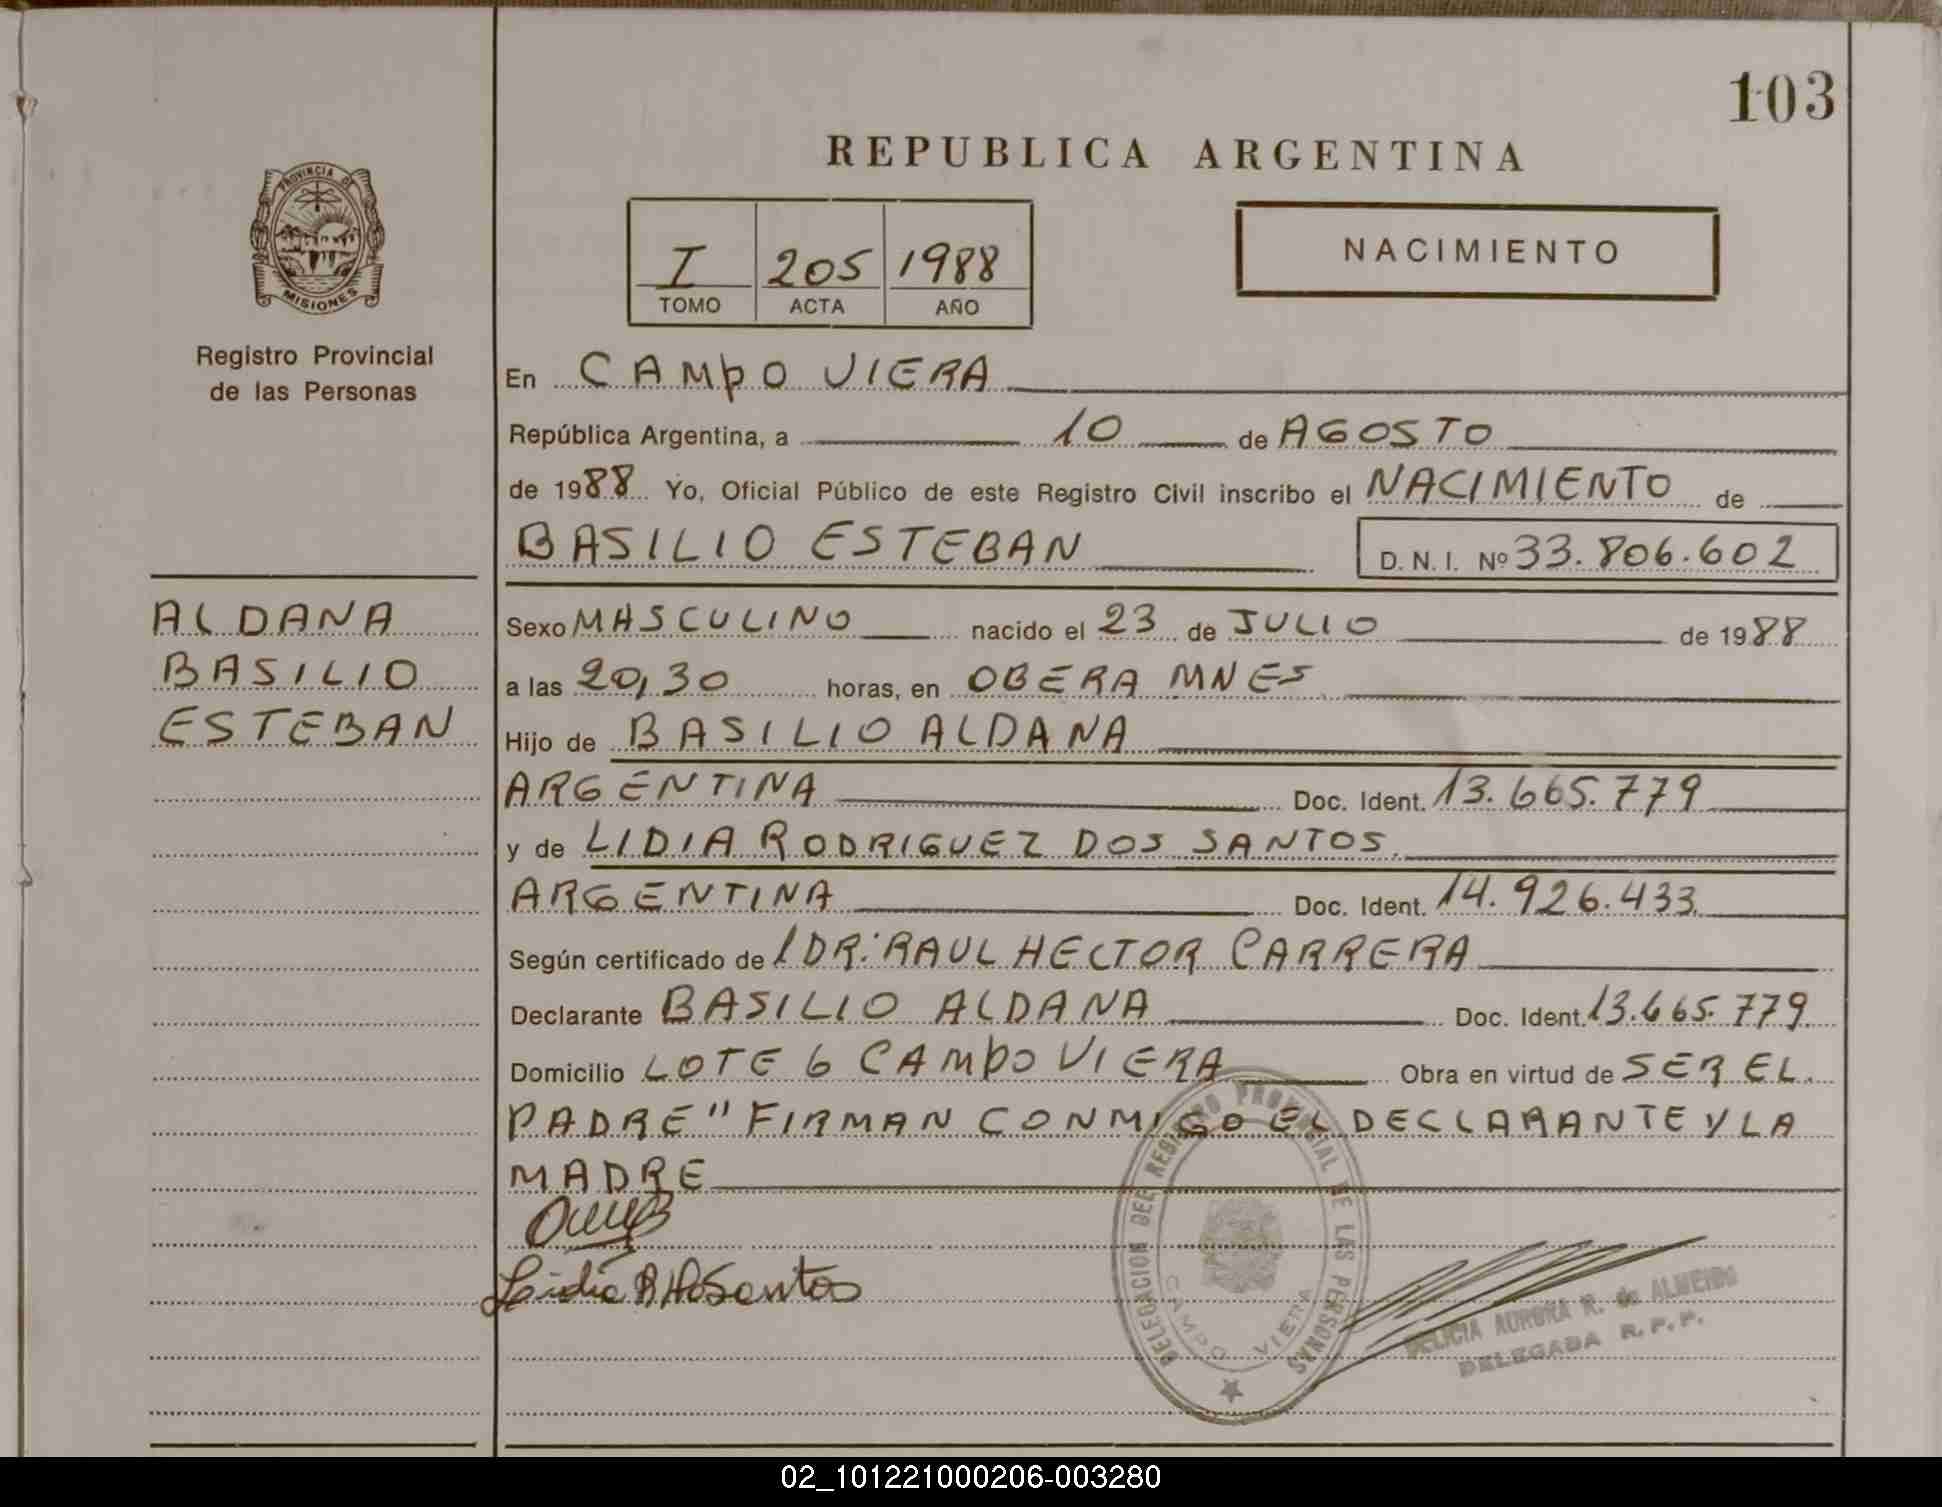 103
REPUBLICA ARGENTINA
PROVINCIA DE
MISIONES
Registro Provincial
de las Personas
I 205 1988
TOMO ACTA AÑO
NACIMIENTO
En CAMPO VIERA
República Argentina, a 10 de AGOSTO
de 1988 Yo, Oficial Público de este Registro Civil inscribo el NACIMIENTO de
BASILIO ESTEBAN D. N. I. Nº 33.806.602
ALDANA
BASILIO
ESTEBAN
Sexo MASCULINO nacido el 23 de JULIO de 1988
a las 20,30 horas, en OBERA MNES
Hijo de BASILIO ALDANA
ARGENTINA Doc. Ident. 13.665.779
y de LIDIA RODRIGUEZ DOS SANTOS.
ARGENTINA Doc. Ident. 14.926.433
Según certificado de l DR. RAUL HECTOR CARRERA
Declarante BASILIO ALDANA Doc. Ident. 13.665.779
Domicilio LOTE 6 CAMPO VIERA Obra en virtud de SER EL
PADRE" FIRMAN CONMIGO EL DECLARANTE Y LA
MADRE
Lidia R Santos
DELEGACION DEL REGISTRO PROVINCIAL DE LAS PERSONAS
CAMPO VIERA
DELICIA AURORA R. de ALMEIDA
DELEGADA R.P.P.
02_101221000206-003280